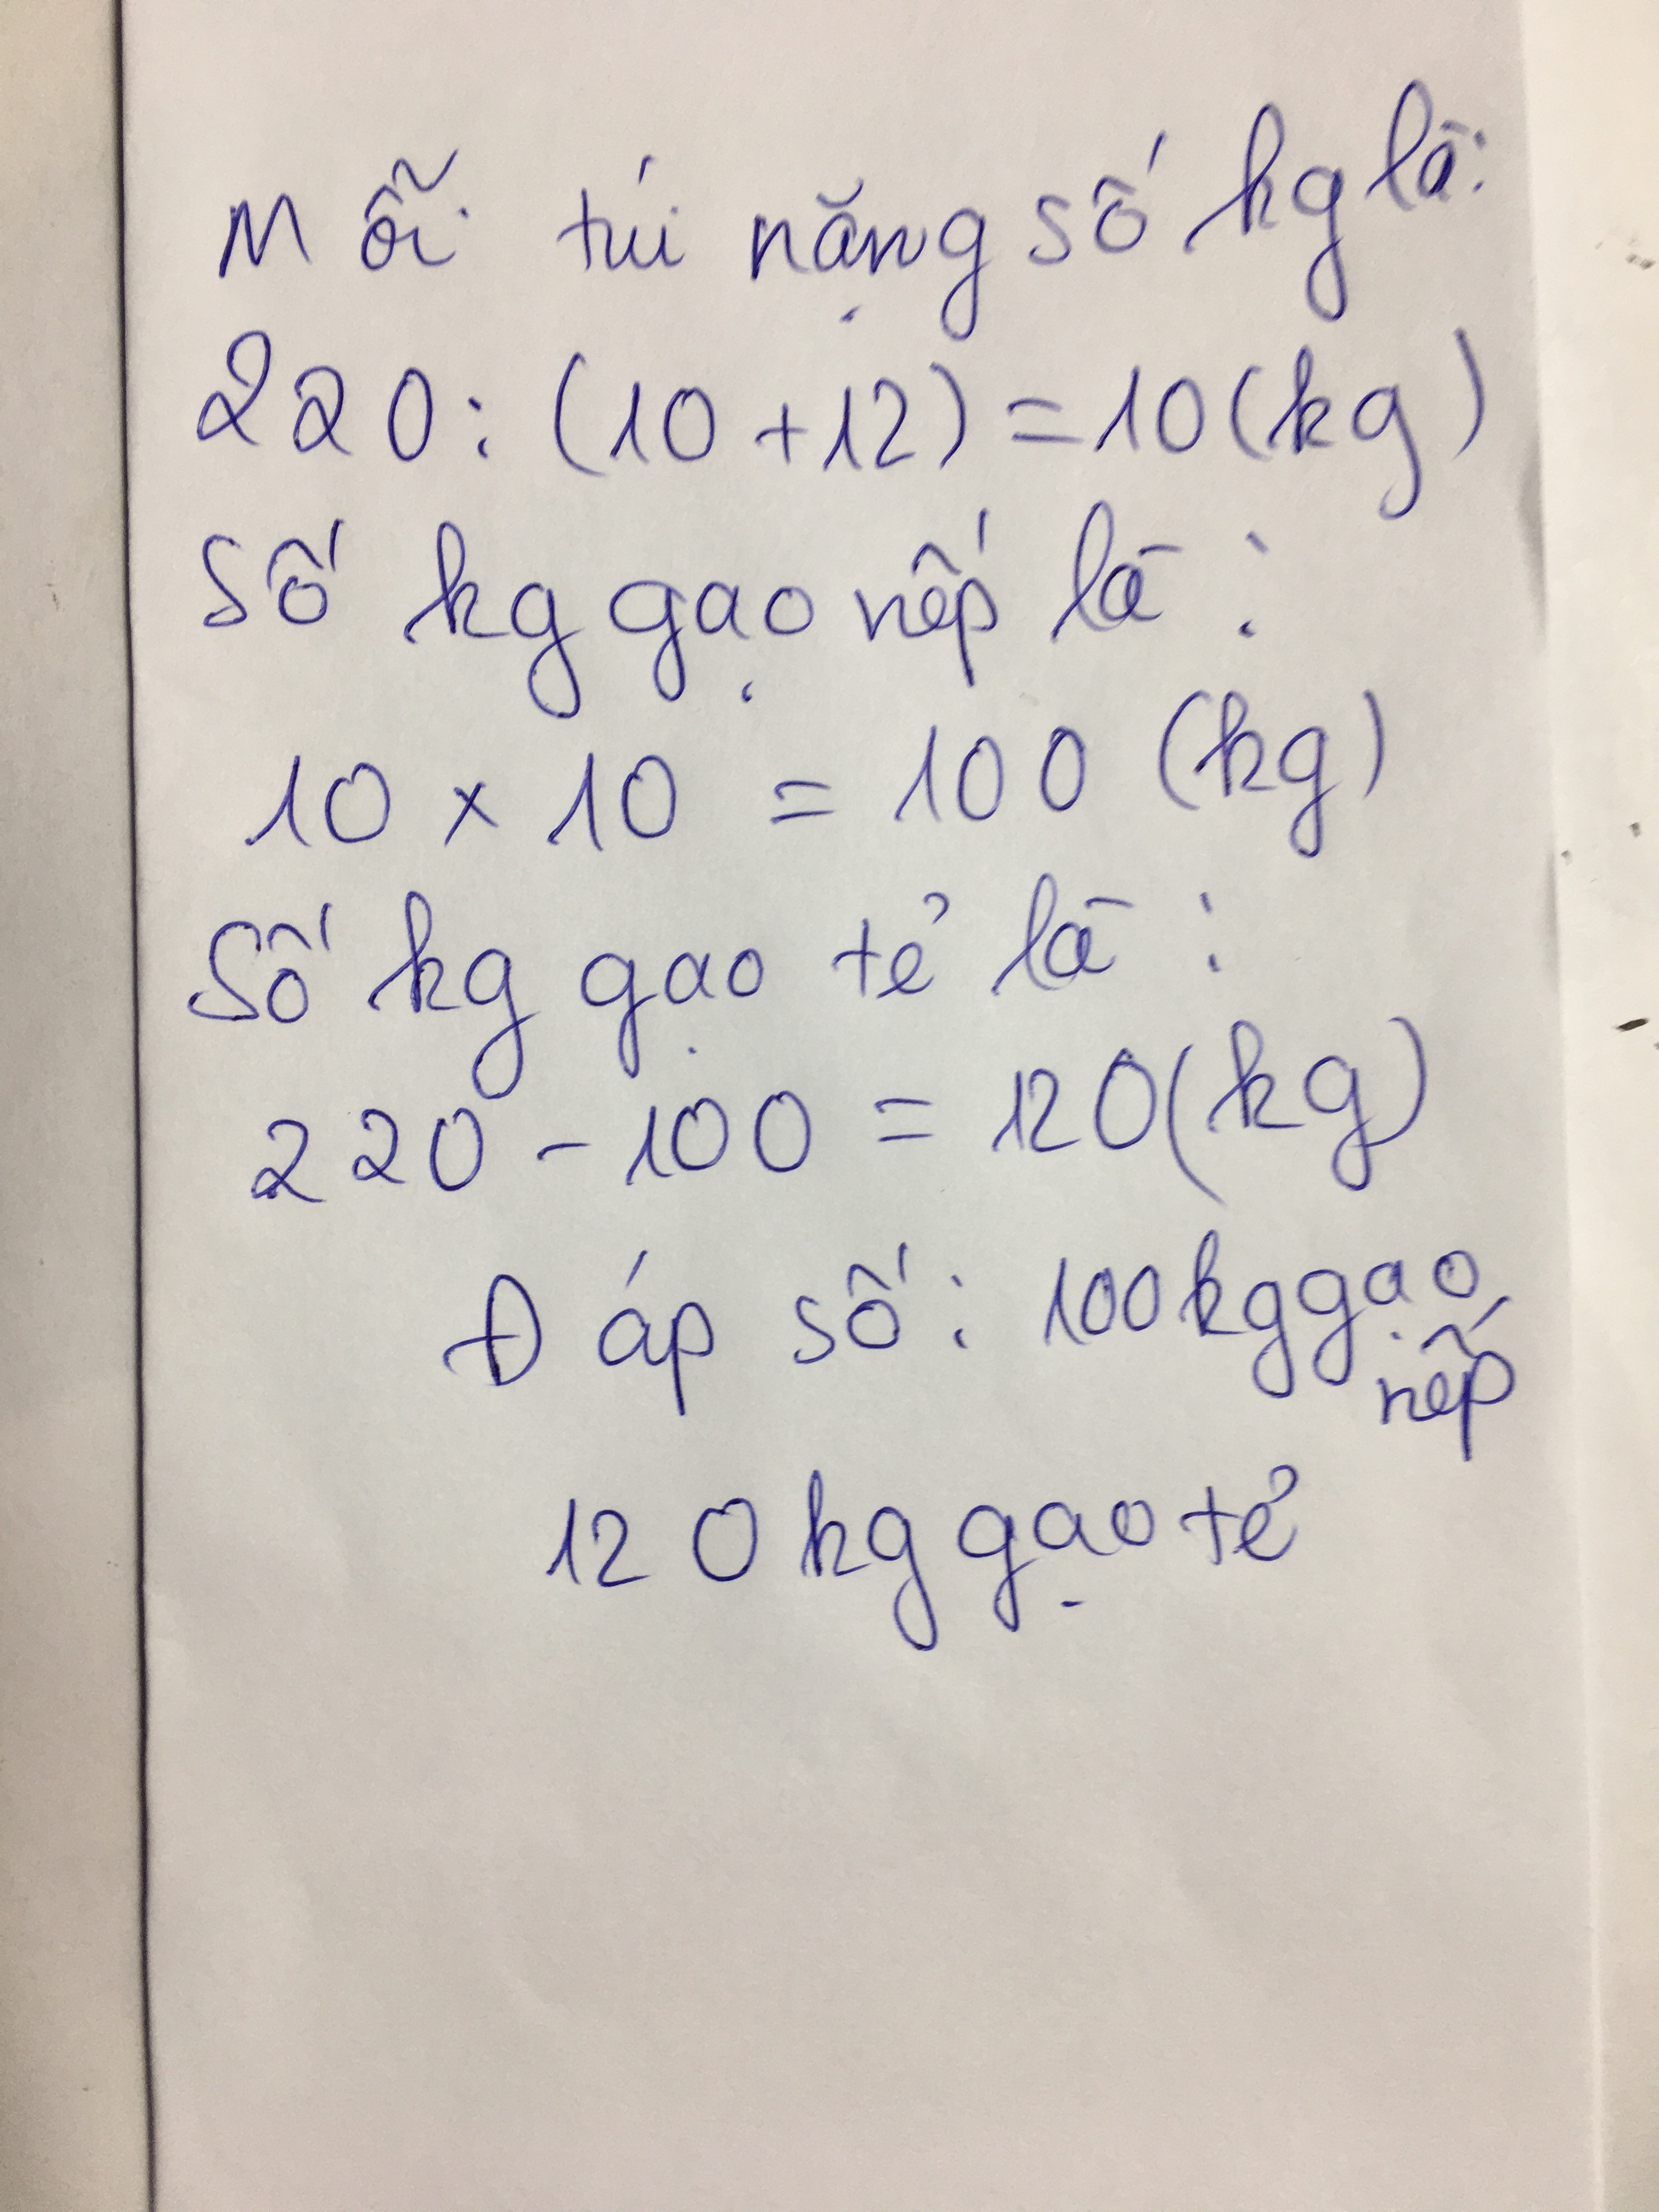 Mỗi túi nặng số kg là:
220 : (10 + 12) = 10 (kg)
Số kg gạo nếp là :
10 x 10 = 100 (kg)
Số kg gạo tẻ là :
220 - 100 = 120 (kg)
Đáp số : 100kg gạo
nếp
120 kg gạo tẻ